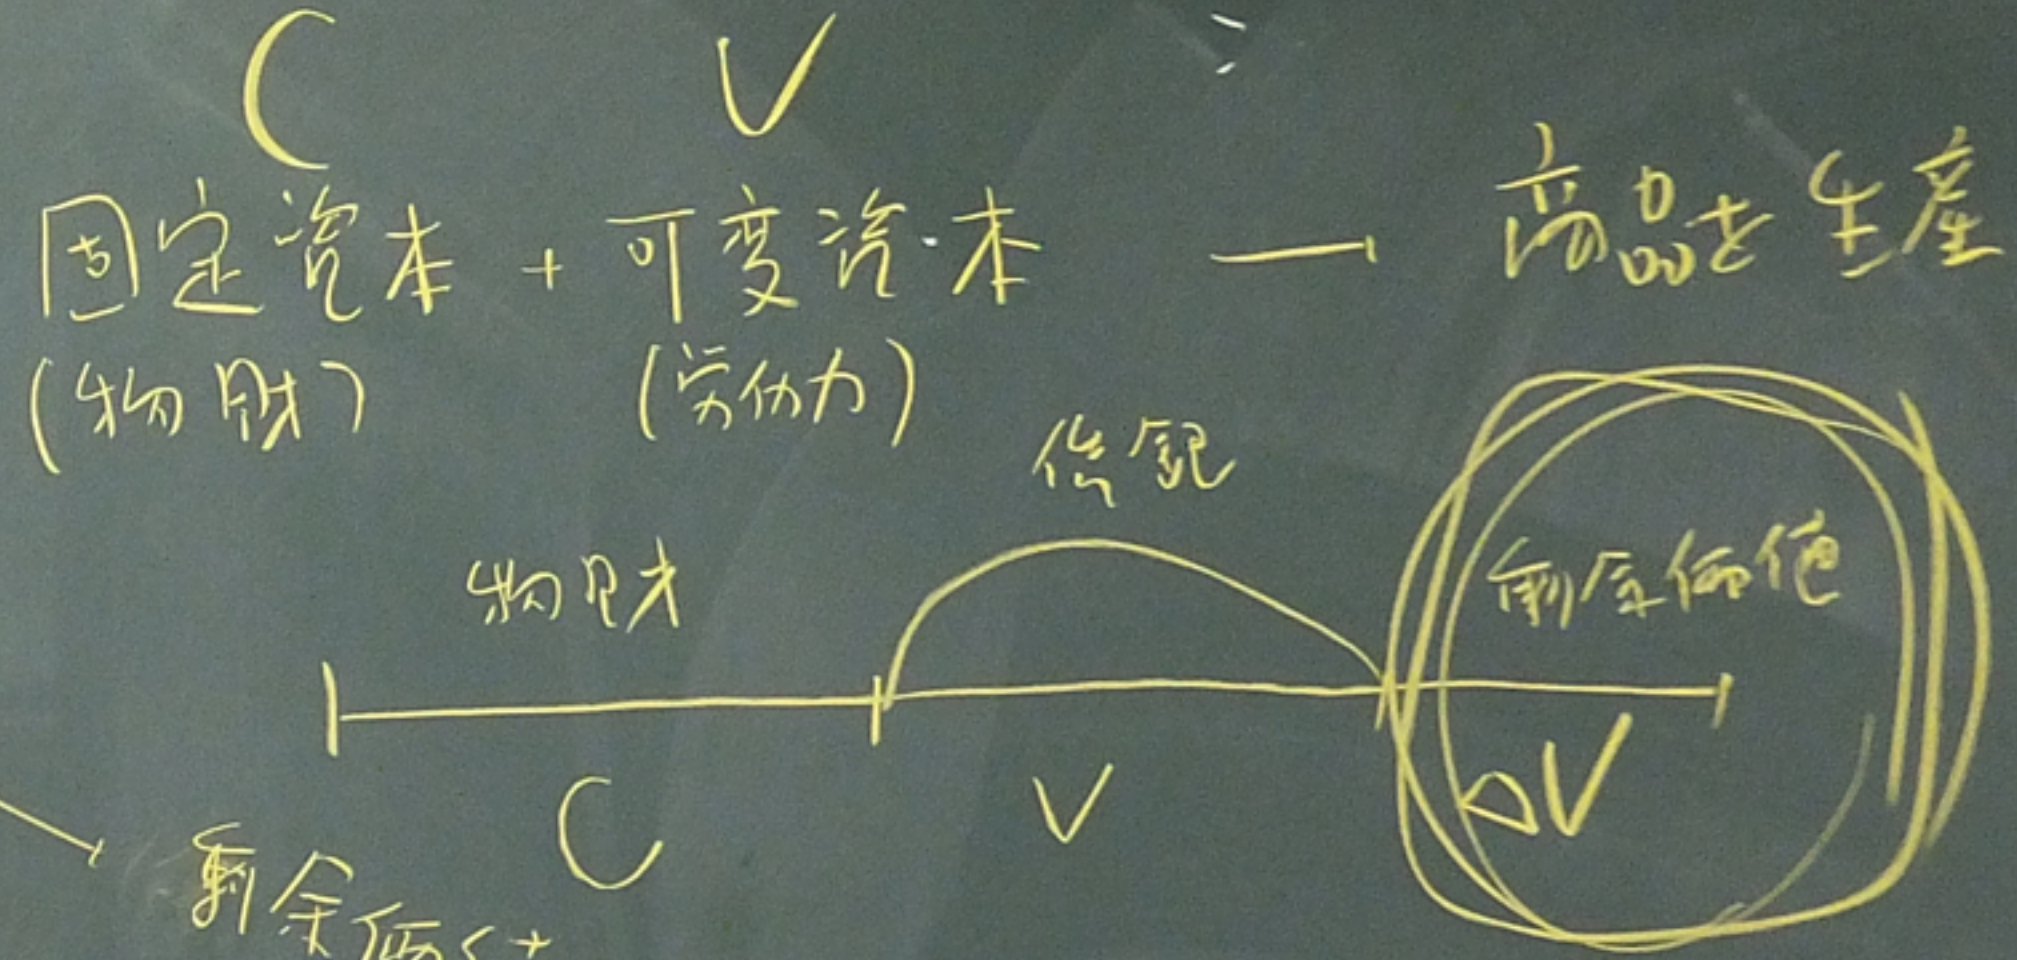 C V
固定資本 + 可変資本 → 商品を生産
(物財) (労働力)
賃銀
物財
剰余価値
C V ΔV
剰余価